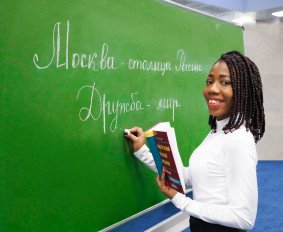 Москва - столица России
Дружба - мир